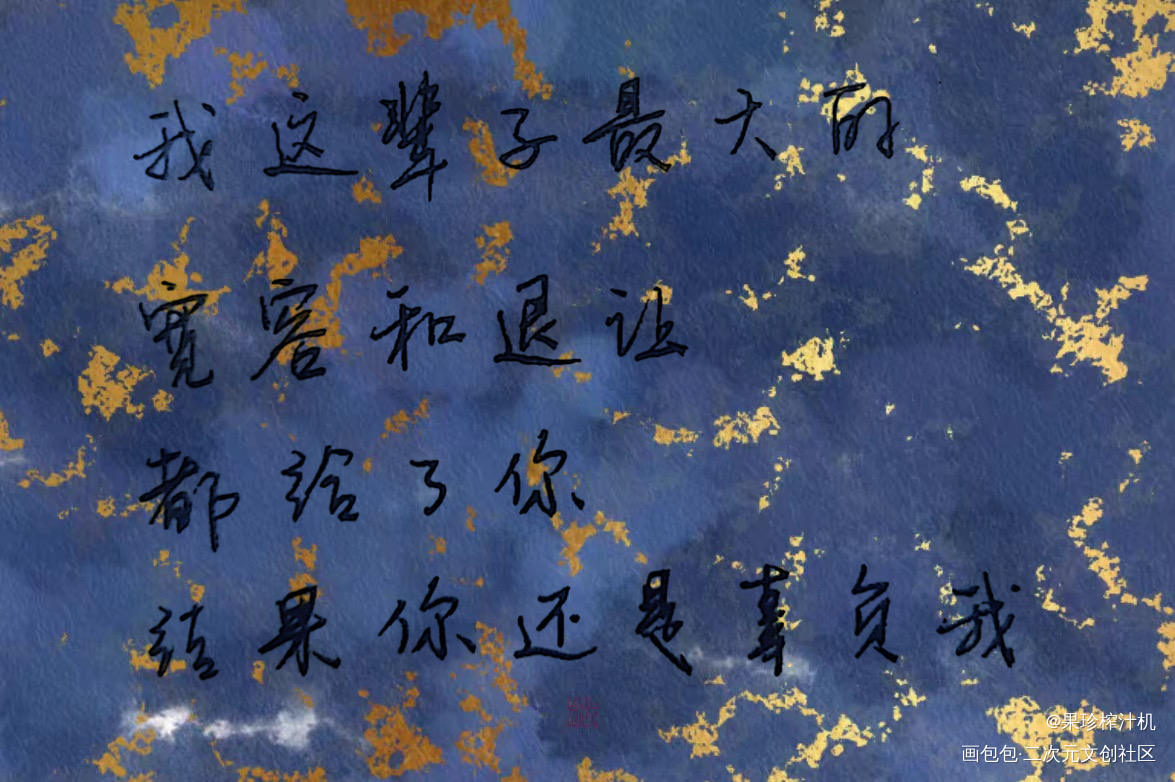 我这辈子最大的
宽容和退让
都给了你
结果你还是辜负我
@果珍榨汁机
画包包·二次元文创社区